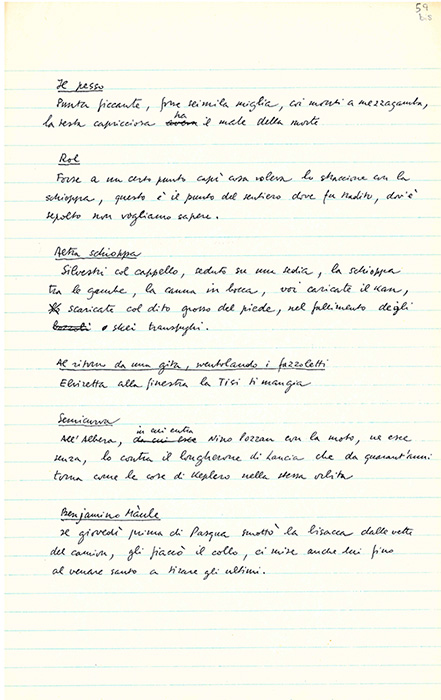 59
bis
Il pesso
Punta piccante, forse seimila miglia, coi monti a mezzagamba,
la testa capricciosa ha il male della morte
Rol
Forse a un certo punto capì cosa voleva lo straccione con la
schioppa, questo è il punto del sentiero dove fu tradito, dov'è
sepolto non vogliamo sapere.
Altra schioppa
Silvestri col cappello, seduto su una sedia, la schioppa
tra le gambe, la canna in bocca, voi caricate il kan,
scaricate col dito grosso del piede, nel fallimento degli
transfughi.
Al ritorno da una gita, sventolando i fazzoletti
Elvizetta alla finestra la Tisi ti mangia
Semicurva
in cui entra
All'Albera, Nino Pozzan con la moto, ne esce
senza, lo contra il longherone di Lancia che da quarant'anni
torna come le cose di Keplero nella stessa orbita
Benjamino Màule
se giovedì prima di Pasqua smottò la bisacca dalle vette
del camion, gli fiaccò il collo, ci mise anche lui fino
al venare santo a tirare gli ultimi.